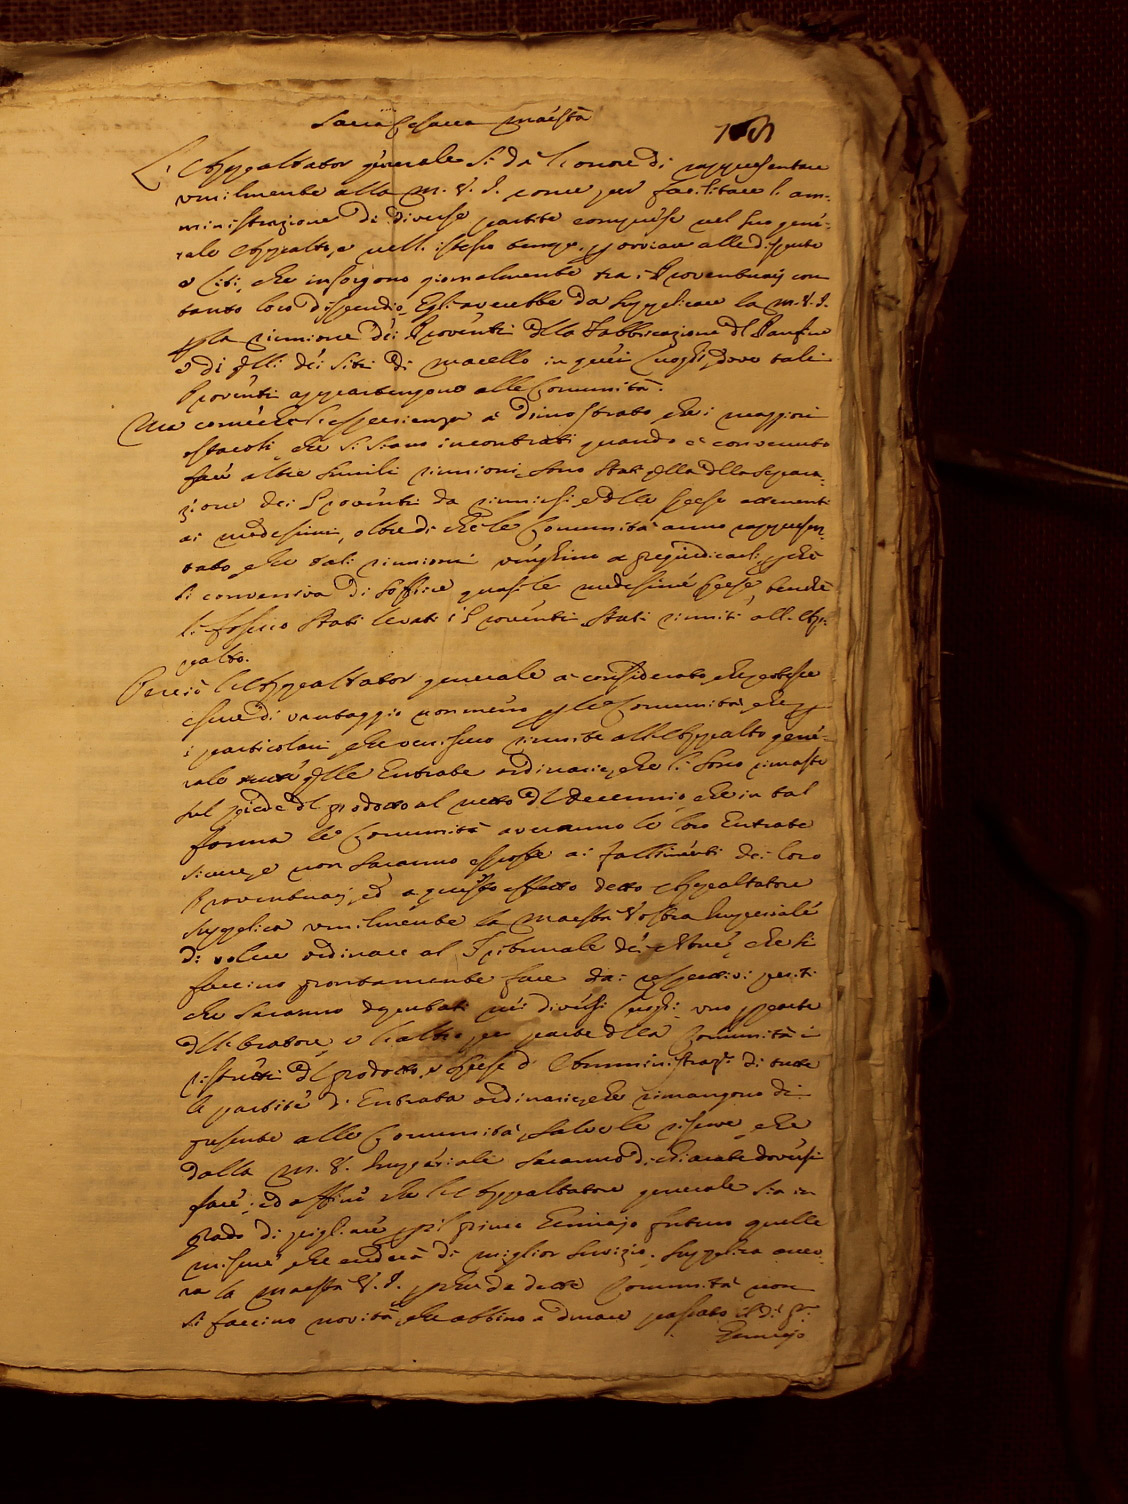 Sacra Cesarea Maestà
L'Appaltator generale si dà l'onore di rappresentare
umilmente alla M. V. I. come per facilitare l'am-
ministrazione di diverse partite comprese nel suo gene-
rale Appalto, e nell'istesso tempo ovviare alle dispute
e liti, che insorgono giornalmente tra i Proventuarj con
tanto loro dispendio, Egli averebbe da supplicare la M. V. I.
la riunione dei Proventi dlla Fabbricazione dl Panfino
e di qlli dei siti di macello in quei luoghi, dove tali
Proventi appartengono alle Comunità.
Ma come che l'esperienza à dimostrato, che i maggiori
ostacoli, che si siano incontrati quando è convenuto
fare altre simili riunioni, sono stati qlla dlla separa-
zione dei Proventi da riunirsi, e dlle spese attenenti
ai medesimi, oltre di che le Comunità anno rappresen-
tato, che tali riunioni venghino a pregiudicarli, pche
li conveniva di soffrire quasi le medesime spese, benche
li fossero stati levati i Proventi, stati riuniti all'Ap-
palto.
Perciò l'Appaltator generale à considerato, che potesse
essere di vantaggio non meno p le Comunità, che p
i particolari, che venissero riunite all'Appalto gene-
rale tutte qlle Entrate ordinarie, che li sono rimaste
sul piede dl prodotto al netto dl Decennio, che in tal
forma le Comunità averanno le loro Entrate
sicure, e non saranno esposte ai fallimenti dei loro
Proventuarj, ed a questo effetto detto Appaltatore
supplica umilmente la Maestà Vostra Imperiale
di volere ordinare al Tribunale dei Nove, che si
faccino prontamente fare dai respettivi periti
che saranno deputati nei diversi luoghi, uno p parte
dll'Oratore, e l'altro per parte dlla Comunità i
ristretti dl prodotto, e spese d'Amministraz.e di tutte
le partite d'Entrata ordinarie, che rimangono di
presente alle Comunità, salve le riserve, che
dalla M. V. Imperiale saranno dichiarate doversi
fare; ed affine che l'Appaltatore generale sia in
grado di pigliare p il primo Gennajo futuro quelle
misure, che crederà di miglior servizio, supplica anco-
ra la Maestà V. I., pche da dette Comunità non
si faccino novità, che abbino a durare passato il dì p.mo
Gennajo